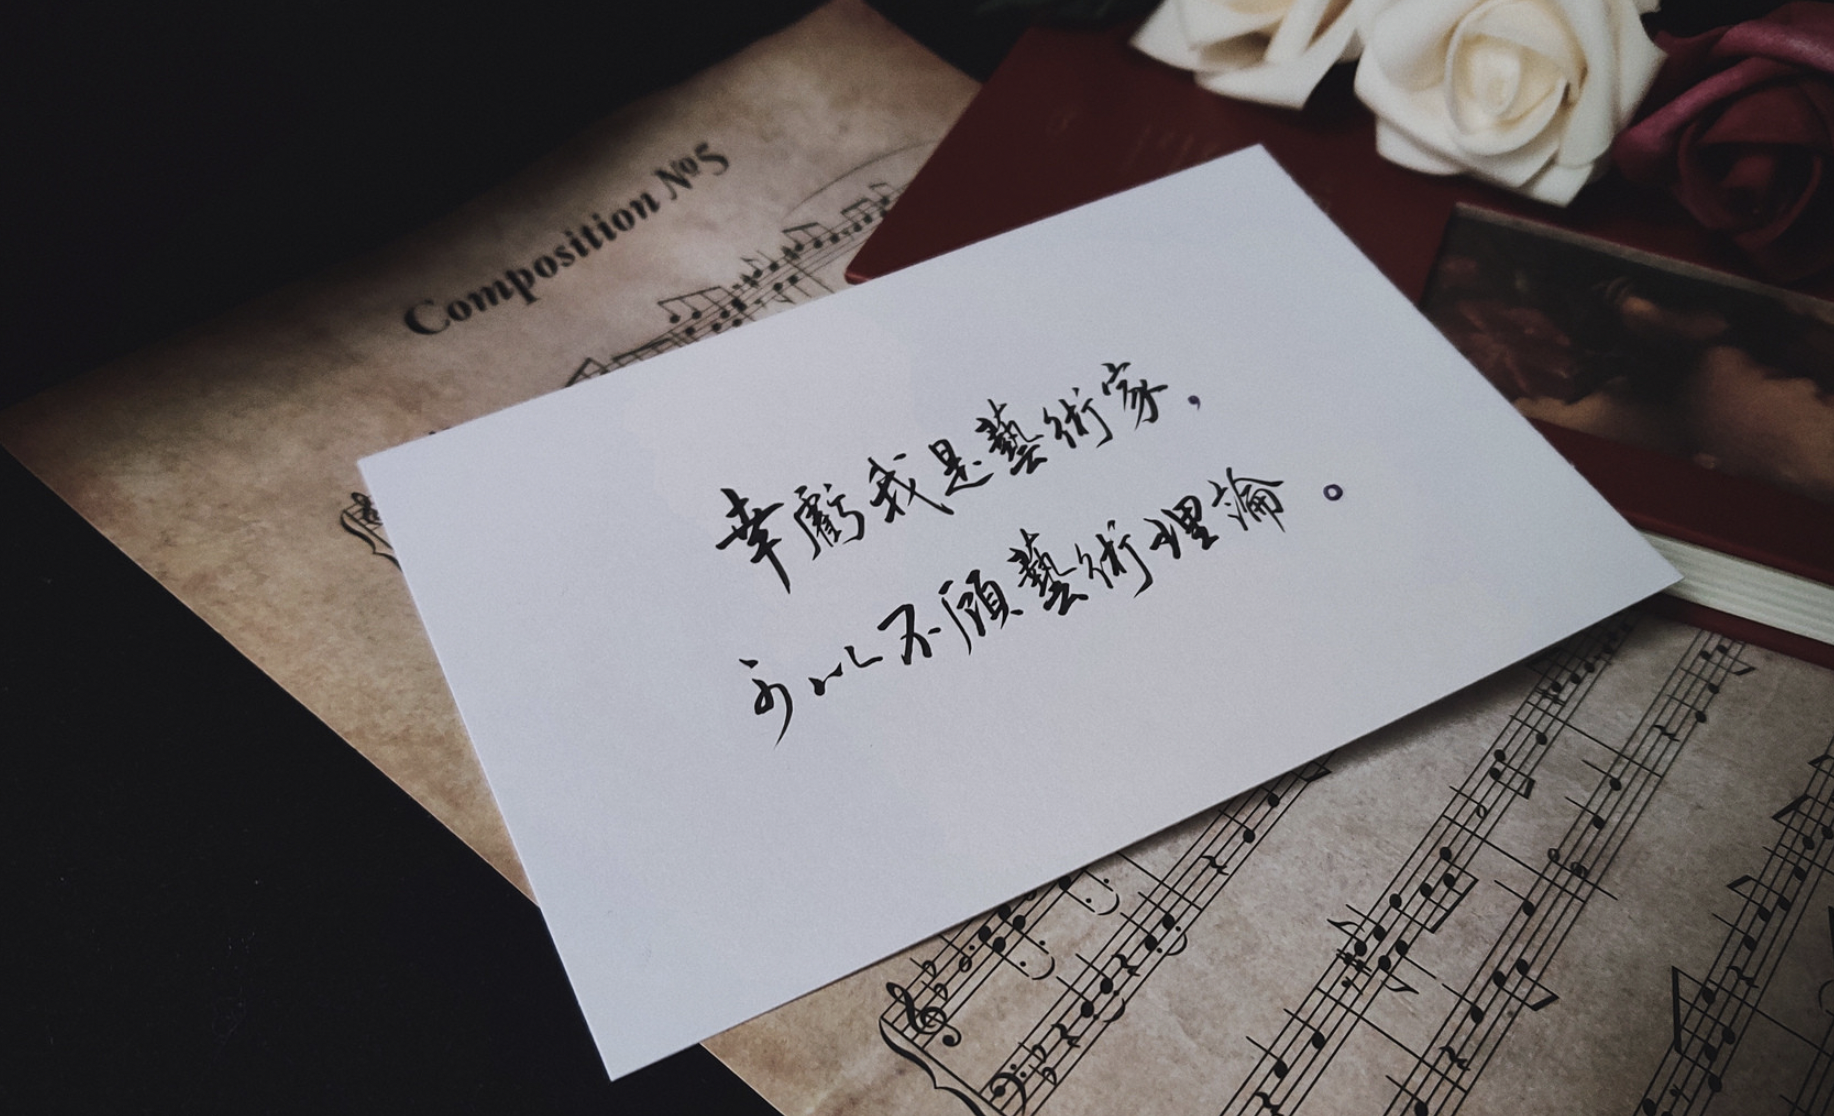 Composition №5
幸虧我是藝術家，
可以不顧藝術理論。